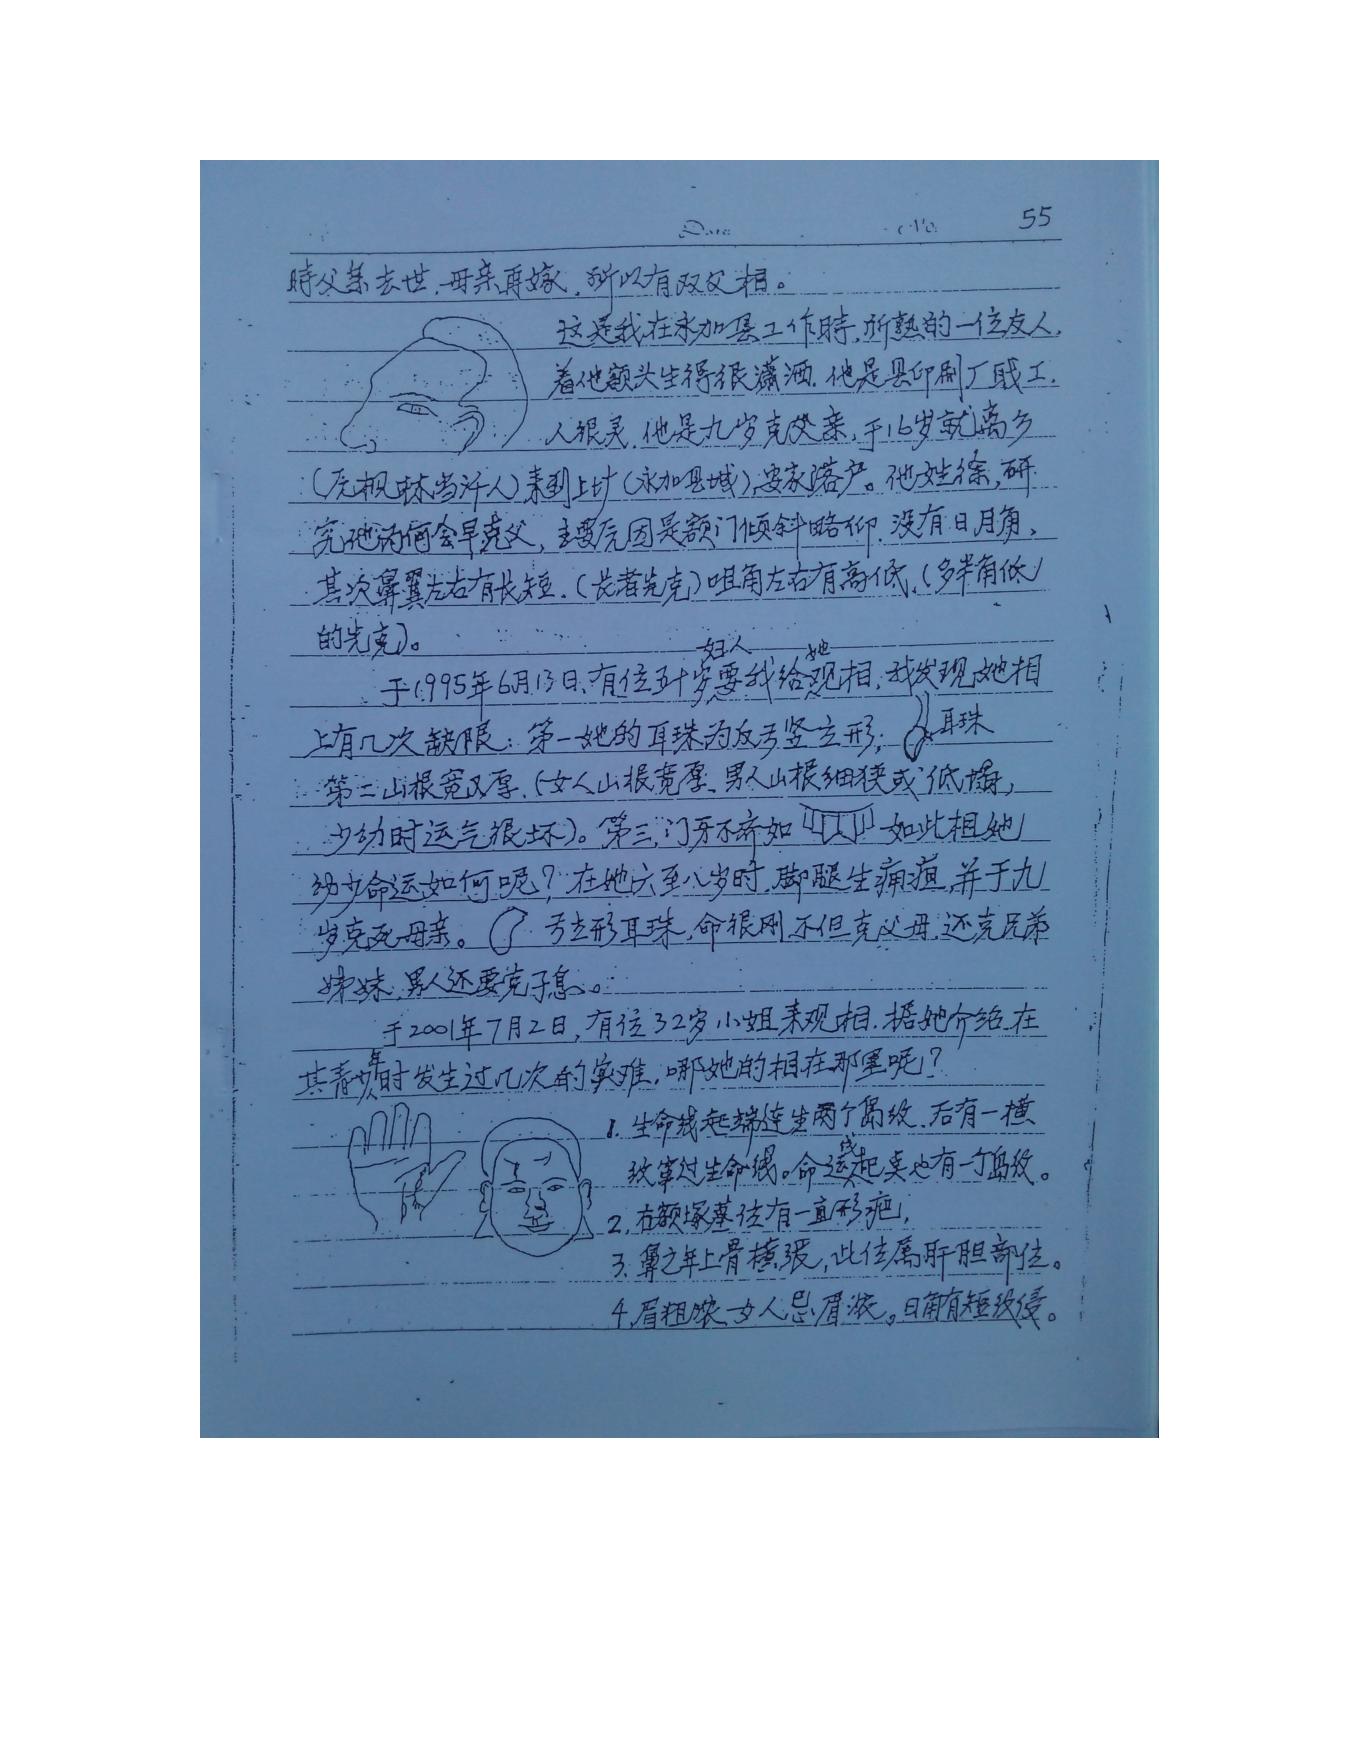 Date No. 55
時父亲去世.母亲再嫁.所以有双父相。
这是我在永加县工作時,所熟的一位友人,
看他额头生得很潇洒.他是县印刷厂职工.
人很灵.他是九岁克父亲,于16岁就离乡
(元枫林当沂人)来到上圩(永加县城),安家落户。他姓徐,研
究他为何会早克父,主要元因是额门倾斜略仰.没有日月角、
其次鼻翼左右有长短.(长者先克)咀角左右有高低.(多半角低
的先克)。
妇人 她
于1995年6月13日,有位五十岁要我给观相,我发现她相
上有几次缺限:第一她的耳珠为反弓竖立形; 耳珠
第二山根宽又厚.(女人山根宽厚、男人山根细狭或低塌,
少幼时运气很坏)。第三,门牙不齐如 如此相她
幼少命运如何呢?在她六至八岁时,脚腿生痈疽,并于九
岁克死母亲。 弓立形耳珠,命很刚不但克父母,还克兄弟
姊妹,男人还要克子息。
于2001年7月2日,有位32岁小姐来观相.据她介绍.在
年
其青少时发生过几次的灾难,哪她的相在那里呢?
1. 生命线起端连生两个岛纹.后有一横
纹穿过生命线。命运线起点也有一个岛纹。
2.右额塚墓位有一直形疤,
3.鼻之年上骨横张,此位属肝胆部位。
4.眉粗浓.女人忌眉浓。日角有短纹侵。